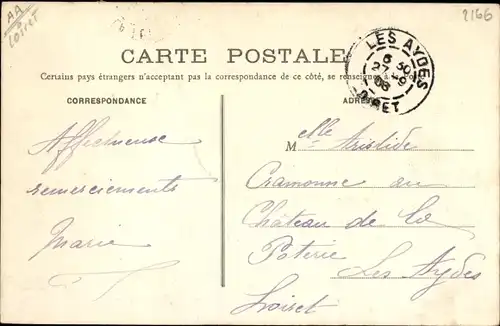 AA
Loiret
2166
CARTE POSTALE
Certains pays étrangers n'acceptant pas la correspondance de ce côté, se renseigner à la Poste
CORRESPONDANCE
ADRESSE
LES AYDES
6 30
27 - 9
08
LOIRET
Affectueux
remerciements
Marie
Melle Aristide
Cramonne au
Château de La
Poterie
Les Aydes
Loiret